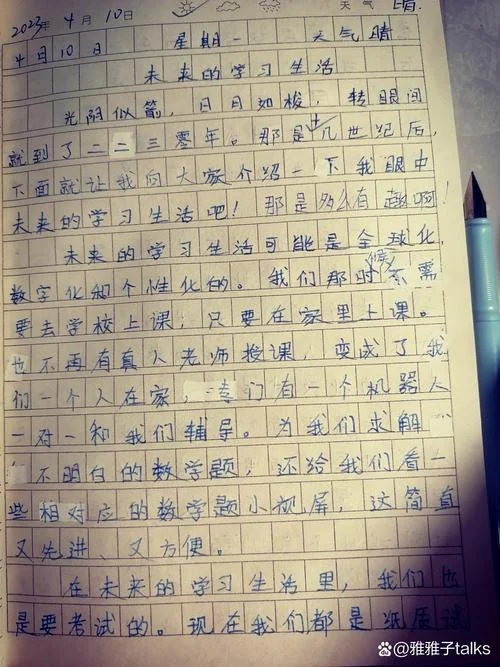 2023年 4月 10日 天气 晴
4月10日 星期一 天气晴
未来的学习生活
光阴似箭，日月如梭，转眼间
就到了二二三零年。那是十几世纪后，
下面就让我向大家介绍一下我眼中
未来的学习生活吧！那是多么有趣啊！
未来的学习生活可能是全球化，
数字化和个性化的。我们那时候不需
要去学校上课，只要在家里上课。
也不再有真人老师授课，变成了我
们一个人在家，专门有一个机器人
一对一和我们辅导。为我们求解
不明白的数学题，还给我们看一
些相对应的数学题小视屏，这简直
又先进、又方便。
在未来的学习生活里，我们也
是要考试的。现在我们都是纸质试
雅雅子talks